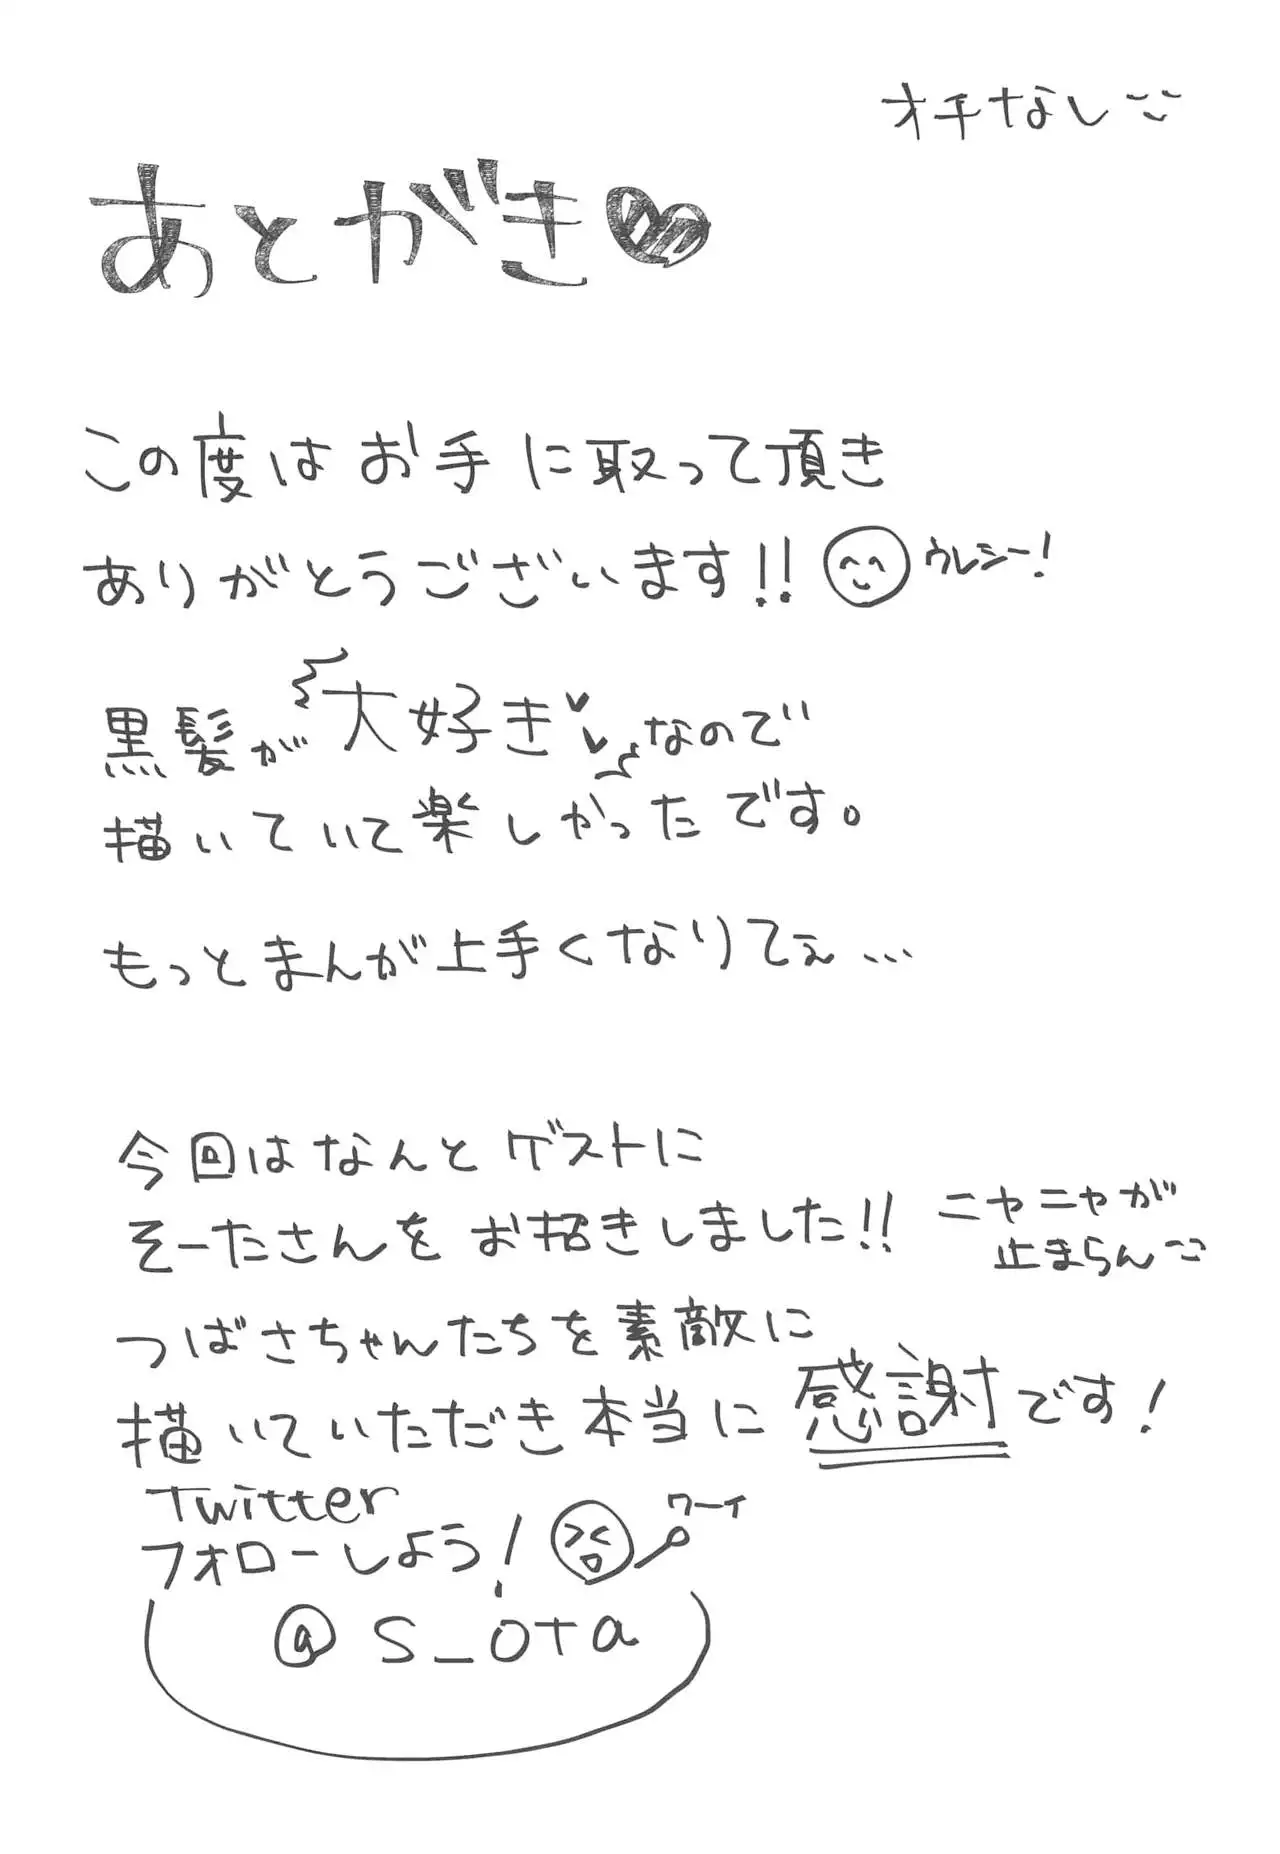 オチなし
あとがき
この度はお手に取って頂き
ありがとうございます!! ウレシー!
黒髪が大好き♥♥なので
描いていて楽しかったです。
もっとまんが上手くなりてぇ…
今回はなんとゲストに
そーたさんをお招きしました!! ニヤニヤが
止まらん
つばさちゃんたちを素敵に
描いていただき本当に感謝です!
Twitter
フォローしよう! ワーイ
@s_ota